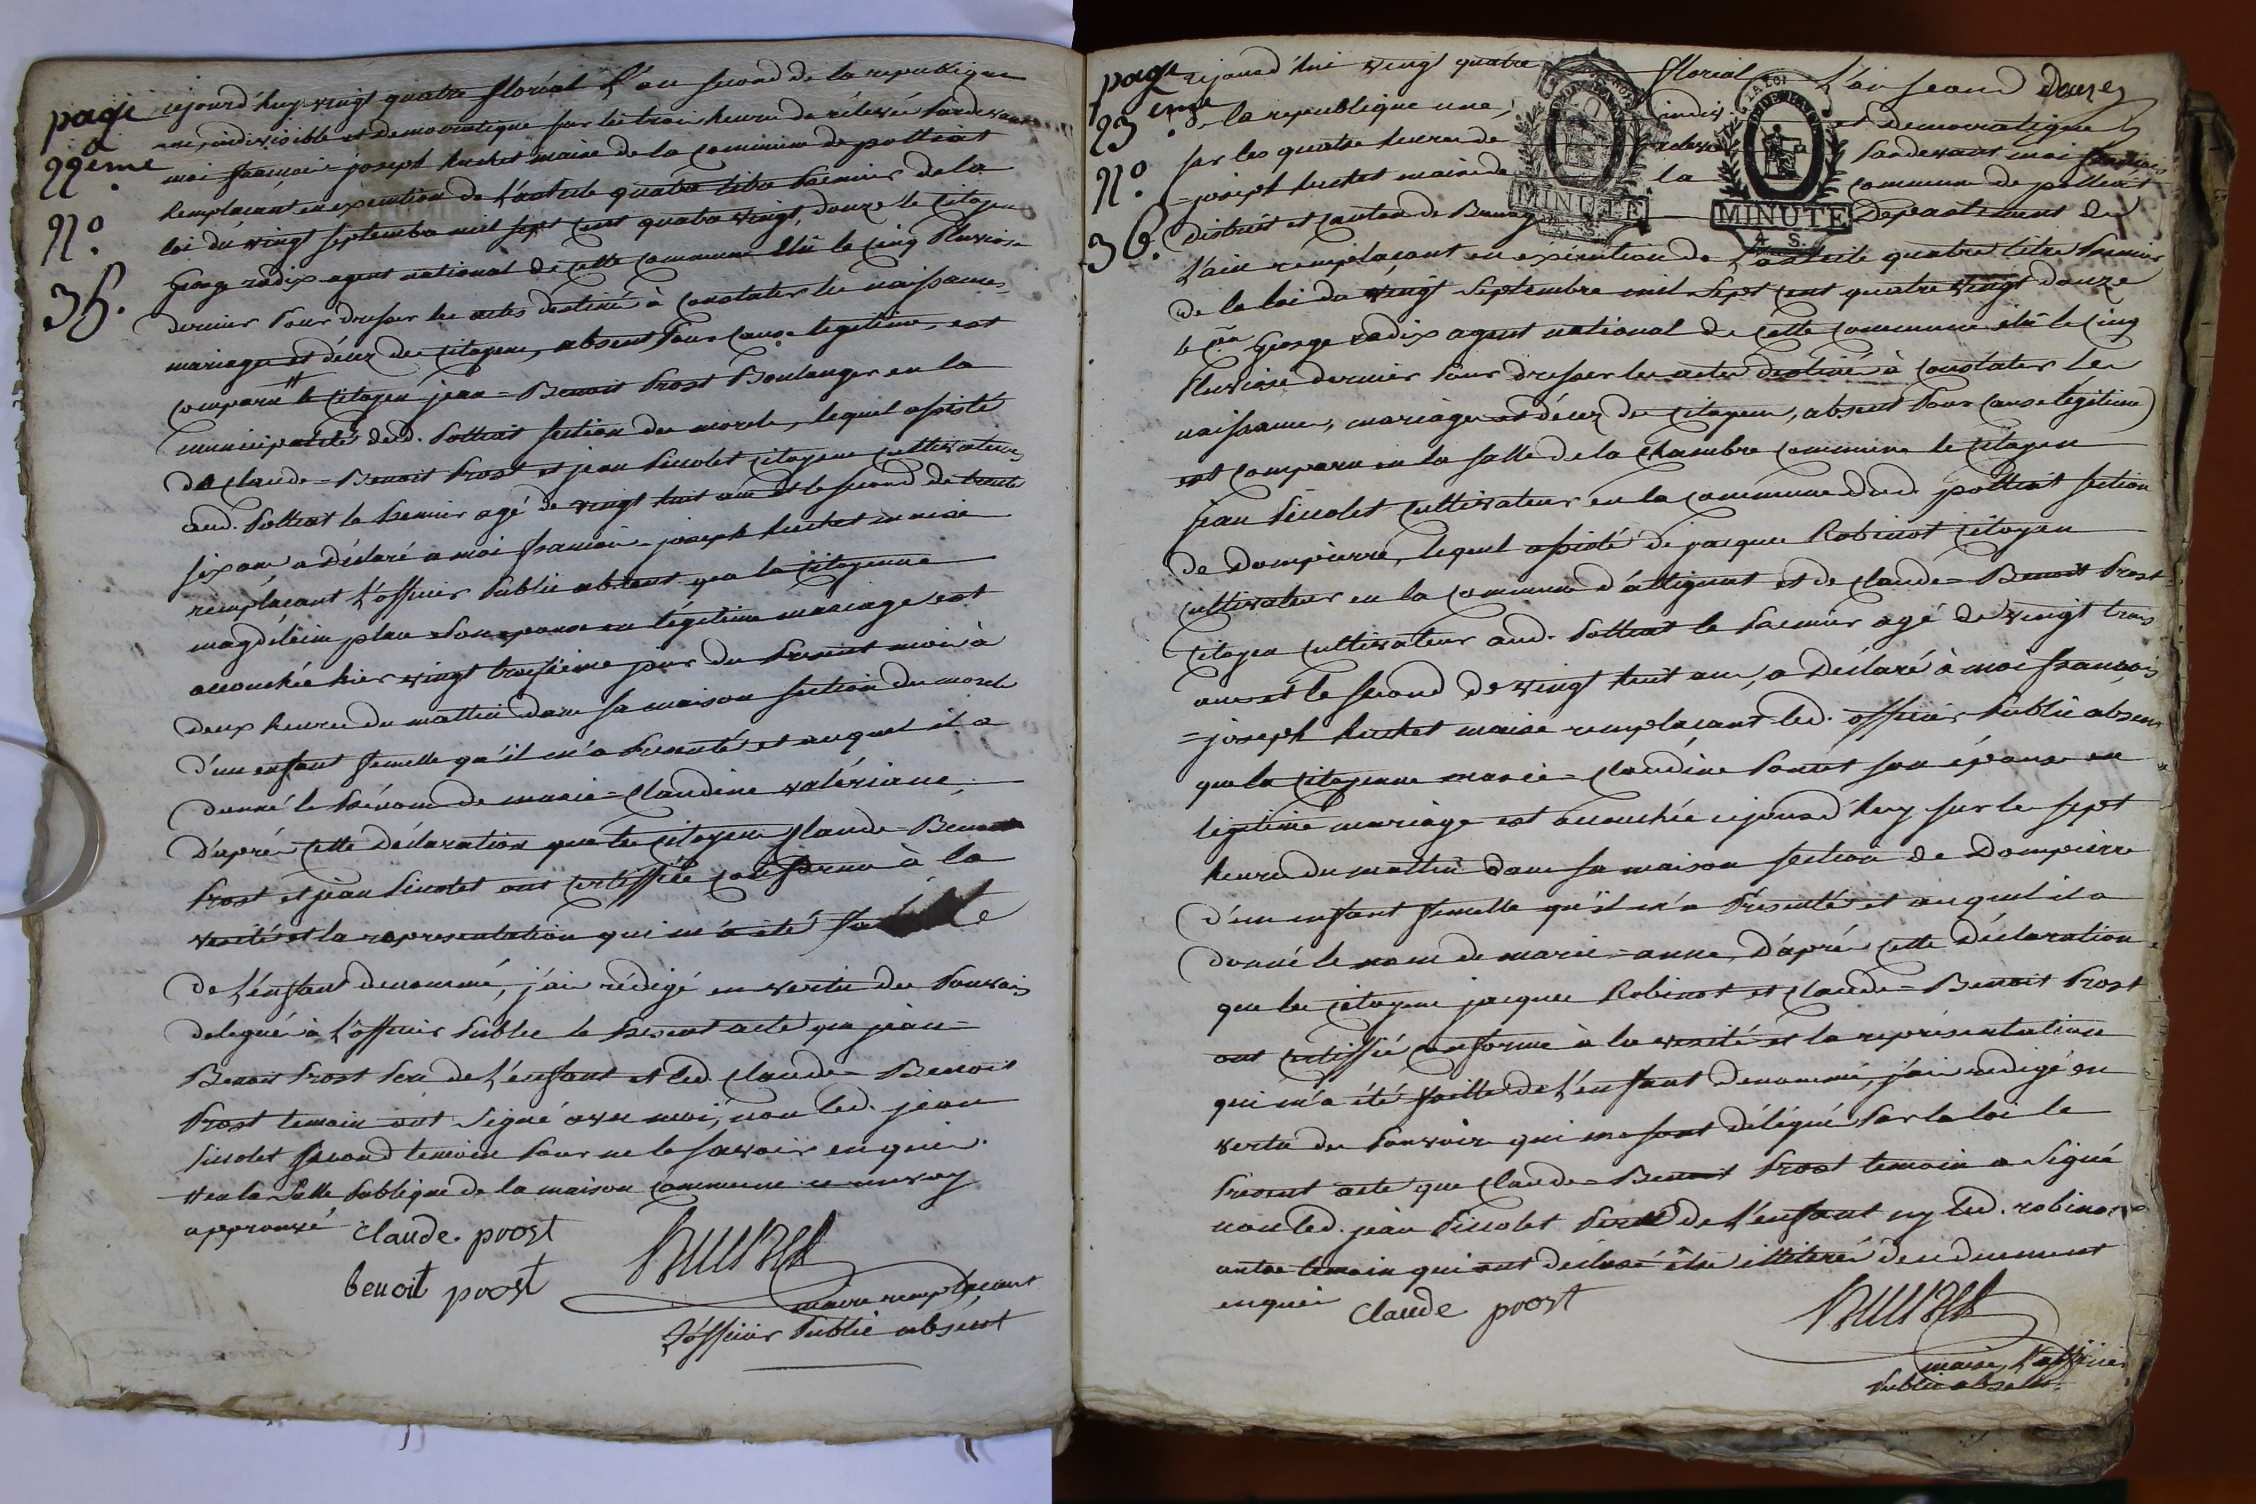 page
22eme
N.o
35.
cejourd'huy vingt quatre floréal L'an second de la republique
une, indivisible et democratique sur les trois heures de relevée Pardevant
moi françois-joseph huchet maire de la commune de polliat
Remplaçant en execution de L'article quatre titre Premier de la
loi du vingt septembre mil sept cent quatre vingt douze le Citoyen
George radix agent national de cette commune élu le cinq Pluviose
dernier Pour dresser les actes destinés à constater les naissances,
mariages et décez des citoyens, absent Pour cause legitime, est
comparu # le citoyen jean-Benoit Prost Boulanger en la
municipalité dud. Polliat section du morel, lequel assisté
de Claude-Benoit Prost et jean Picolet citoyens cultivateurs
aud. Polliat le Premier agé de vingt huit ans et le second de trente
six ans a déclaré a moi françois-joseph huchet maire
remplaçant L'officier Public absent que la citoyenne
magdeleine son epouse en légitime mariage est
accouchée hier vingt troisieme jour du Present mois à
deux heures du mattin dans sa maison section du morel
d'un enfant femelle qu'il m'a Presenté et auquel il a
donné le Prénom de marie-Claudine valériane,
D'après cette déclaration que les citoyens Claude-Benoit
Prost et jean Picolet ont certiffiée conforme à la
verité et la representation qui m'a été
de L'enfant denommé, j'ai rédigé en vertu des Pouvoirs
delegués à L'officier Public le Present acte que jean-
Benoit Prost Pere de L'enfant et led. Claude-Benoit
Prost temoin ont signé avec moi, non led. jean
Picolet second temoin Pour ne le savoir enquis.
# en la Salle Publique de la maison commune ce renvoy
approuvé
Claude. prost
benoit prost
huchet
maire remplaçant
L'officier Public absent
page
23eme
N.o
36.
cejourd'hui vingt quatre floréal L'an second
de la republique une, indiv. et democratique
sur les quatre heures de relevée Pardevant moi françois
-joseph huchet maire de la commune de polliat
District et canton de Bourg Departement de
L'ain remplaçant en exécution de L'article quatre titre Premier
de la loi du vingt Septembre mil sept cent quatre vingt douze
le cen George radix agent national de cette commune élu le cinq
Pluviose dernier Pour dresser les actes destinés à constater les
naissances, mariages et décez des citoyens, absent Pour cause légitime
est comparu en la salle de la chambre commune le citoyen
jean Picolet cultivateur en la commune dud. polliat section
de Dompierre, lequel assisté de jacques Robinot citoyen
cultivateur en la commune d'attignat et de Claude-Benoit Prost
citoyen cultivateur aud. Polliat le Premier agé de vingt trois
ans et le second de vingt huit ans, a Déclaré à moi françois
-joseph huchet maire remplaçant led. officier Public absent
que la citoyenne marie-Claudine son épouse en
légitime mariage est accouchée cejourd'huy sur les sept
heures du mattin dans sa maison section de Dompierre
d'un enfant femelle qu'il m'a Presenté et auquel il a
donné le nom de marie-anne, D'après cette déclaration
que les citoyens jacques Robinot et Claude-Benoit Prost
ont certiffié conforme à la verité et la représentation
qui m'a été faitte de L'enfant denommé, j'ai redigé en
vertu des Pouvoirs qui me sont délégués Par la loi le
Present acte que Claude-Benoit Prost temoin a signé
non led. jean Picolet Pere de L'enfant ny led. robinot
autre temoin qui ont déclaré être illiterés de ce duement
enquis
Claude prost
huchet
maire, L'officier
Public absent.
MINUTE
MINUTE
A. S.
LA LOI